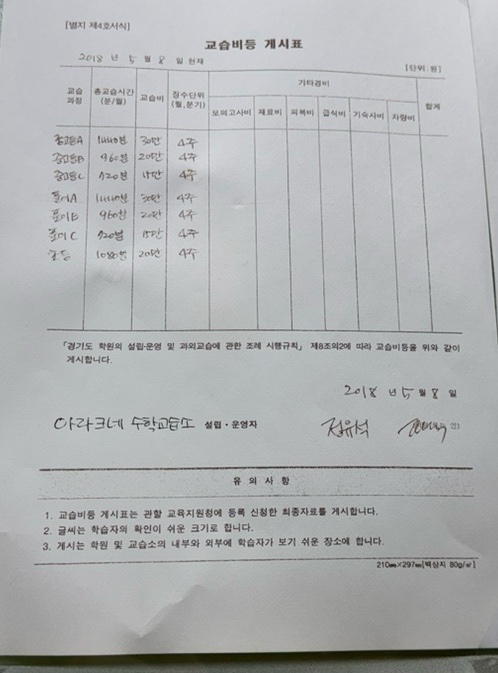 [별지 제4호서식]
교습비등 게시표
2018 년 5 월 8 일 현재
[단위:원]
교습과정 총교습시간(분/월) 교습비 징수단위(월,분기) 기타경비 합계
모의고사비 재료비 피복비 급식비 기숙사비 차량비
중고등A 1440분 30만 4주
중고등B 960분 20만 4주
중고등C 720분 15만 4주
A 1440분 30만 4주
B 960분 20만 4주
C 720분 15만 4주
초등 1080분 20만 4주
「경기도 학원의 설립·운영 및 과외교습에 관한 조례 시행규칙」 제8조의2에 따라 교습비등을 위와 같이
게시합니다.
2018 년 5 월 8 일
아라크네 수학교습소 설립·운영자 정유석 인)
유 의 사 항
1. 교습비등 게시표는 관할 교육지원청에 등록 신청한 최종자료를 게시합니다.
2. 글씨는 학습자의 확인이 쉬운 크기로 합니다.
3. 게시는 학원 및 교습소의 내부와 외부에 학습자가 보기 쉬운 장소에 합니다.
210㎜×297㎜[백상지 80g/㎡]